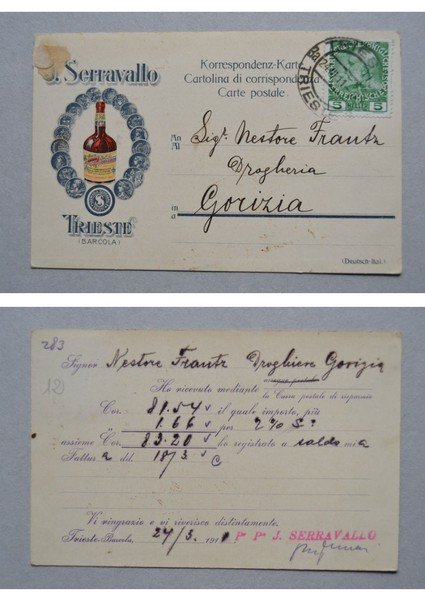 J. Serravallo
TRIESTE
(BARCOLA)
Korrespondenz-Karte
Cartolina di corrispondenza
Carte postale
An
Al
Sigr. Nestore Frantz
Drogheria
in
a
Gorizia
(Deutsch-Ital.)
5 5
283
12
Signor Nestore Frantz Droghiere Gorizia
Ho ricevuto mediante
la Cassa postale di risparmio
Cor. 81.54 il quale importo, più
" 1.66 per 2% S.
assieme Cor. 83.20 ho registrato a saldo mia
Fattura dd. 18/3 C
Vi ringrazio e vi riverisco distintamente.
Trieste-Barcola, 24/3. 1911 Pa Pa J. SERRAVALLO